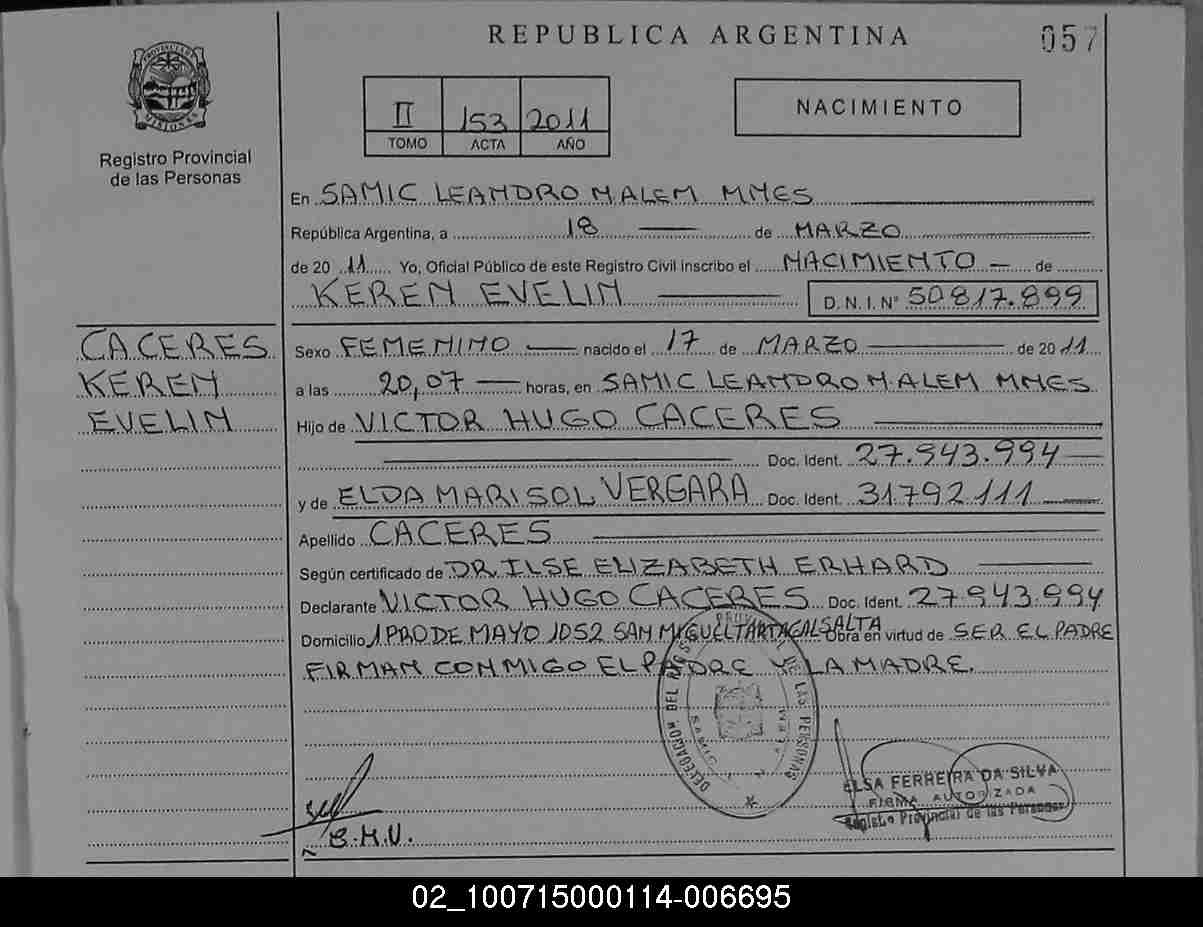 REPUBLICA ARGENTINA
057
PROVINCIA
MISIONES
Registro Provincial
de las Personas
II 153 2011
TOMO ACTA AÑO
NACIMIENTO
En SAMIC LEANDRO N. ALEM MNES
República Argentina, a 18 de MARZO
de 2011 Yo, Oficial Público de este Registro Civil inscribo el NACIMIENTO de
KEREN EVELIN D.N.I. Nº 50.817.899
CACERES
KEREN
EVELIN
Sexo FEMENINO nacido el 17 de MARZO de 2011
a las 20,07 horas, en SAMIC LEANDRO N. ALEM MNES
Hijo de VICTOR HUGO CACERES
Doc. Ident. 27.943.994
y de ELDA MARISOL VERGARA Doc. Ident. 31792111
Apellido CACERES
Según certificado de DR. ILSE ELIZABETH ERHARD
Declarante VICTOR HUGO CACERES Doc. Ident. 27943.994
Domicilio 1 PRO DE MAYO 1052 SAN MIGUEL TARTAGAL SALTA Obra en virtud de SER EL PADRE
FIRMAN CONMIGO EL PADRE Y LA MADRE.
DELEGACION DEL REGISTRO PROVINCIAL DE LAS PERSONAS
ELSA FERREIRA DA SILVA
FIRMA AUTORIZADA
Registro Provincial de las Personas
02_100715000114-006695